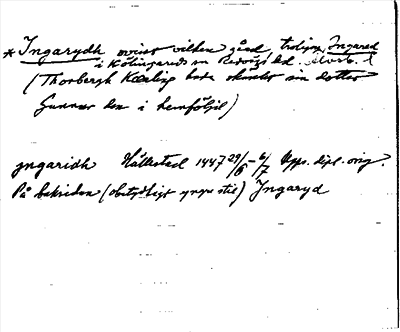 * Ingarydh ovisst vilken gård, troligen Ingarad
i Kölingareds sn Redvägs hd.
(Thorbergh Kœling bode skunkt sin dotter
Gunnor den i hemföljd)
yngaridh Hällestad 1447 29/6 - 6/7 Upps. dipl. orig.
På baksidan (obetydligt yngre stil) Jngaryd